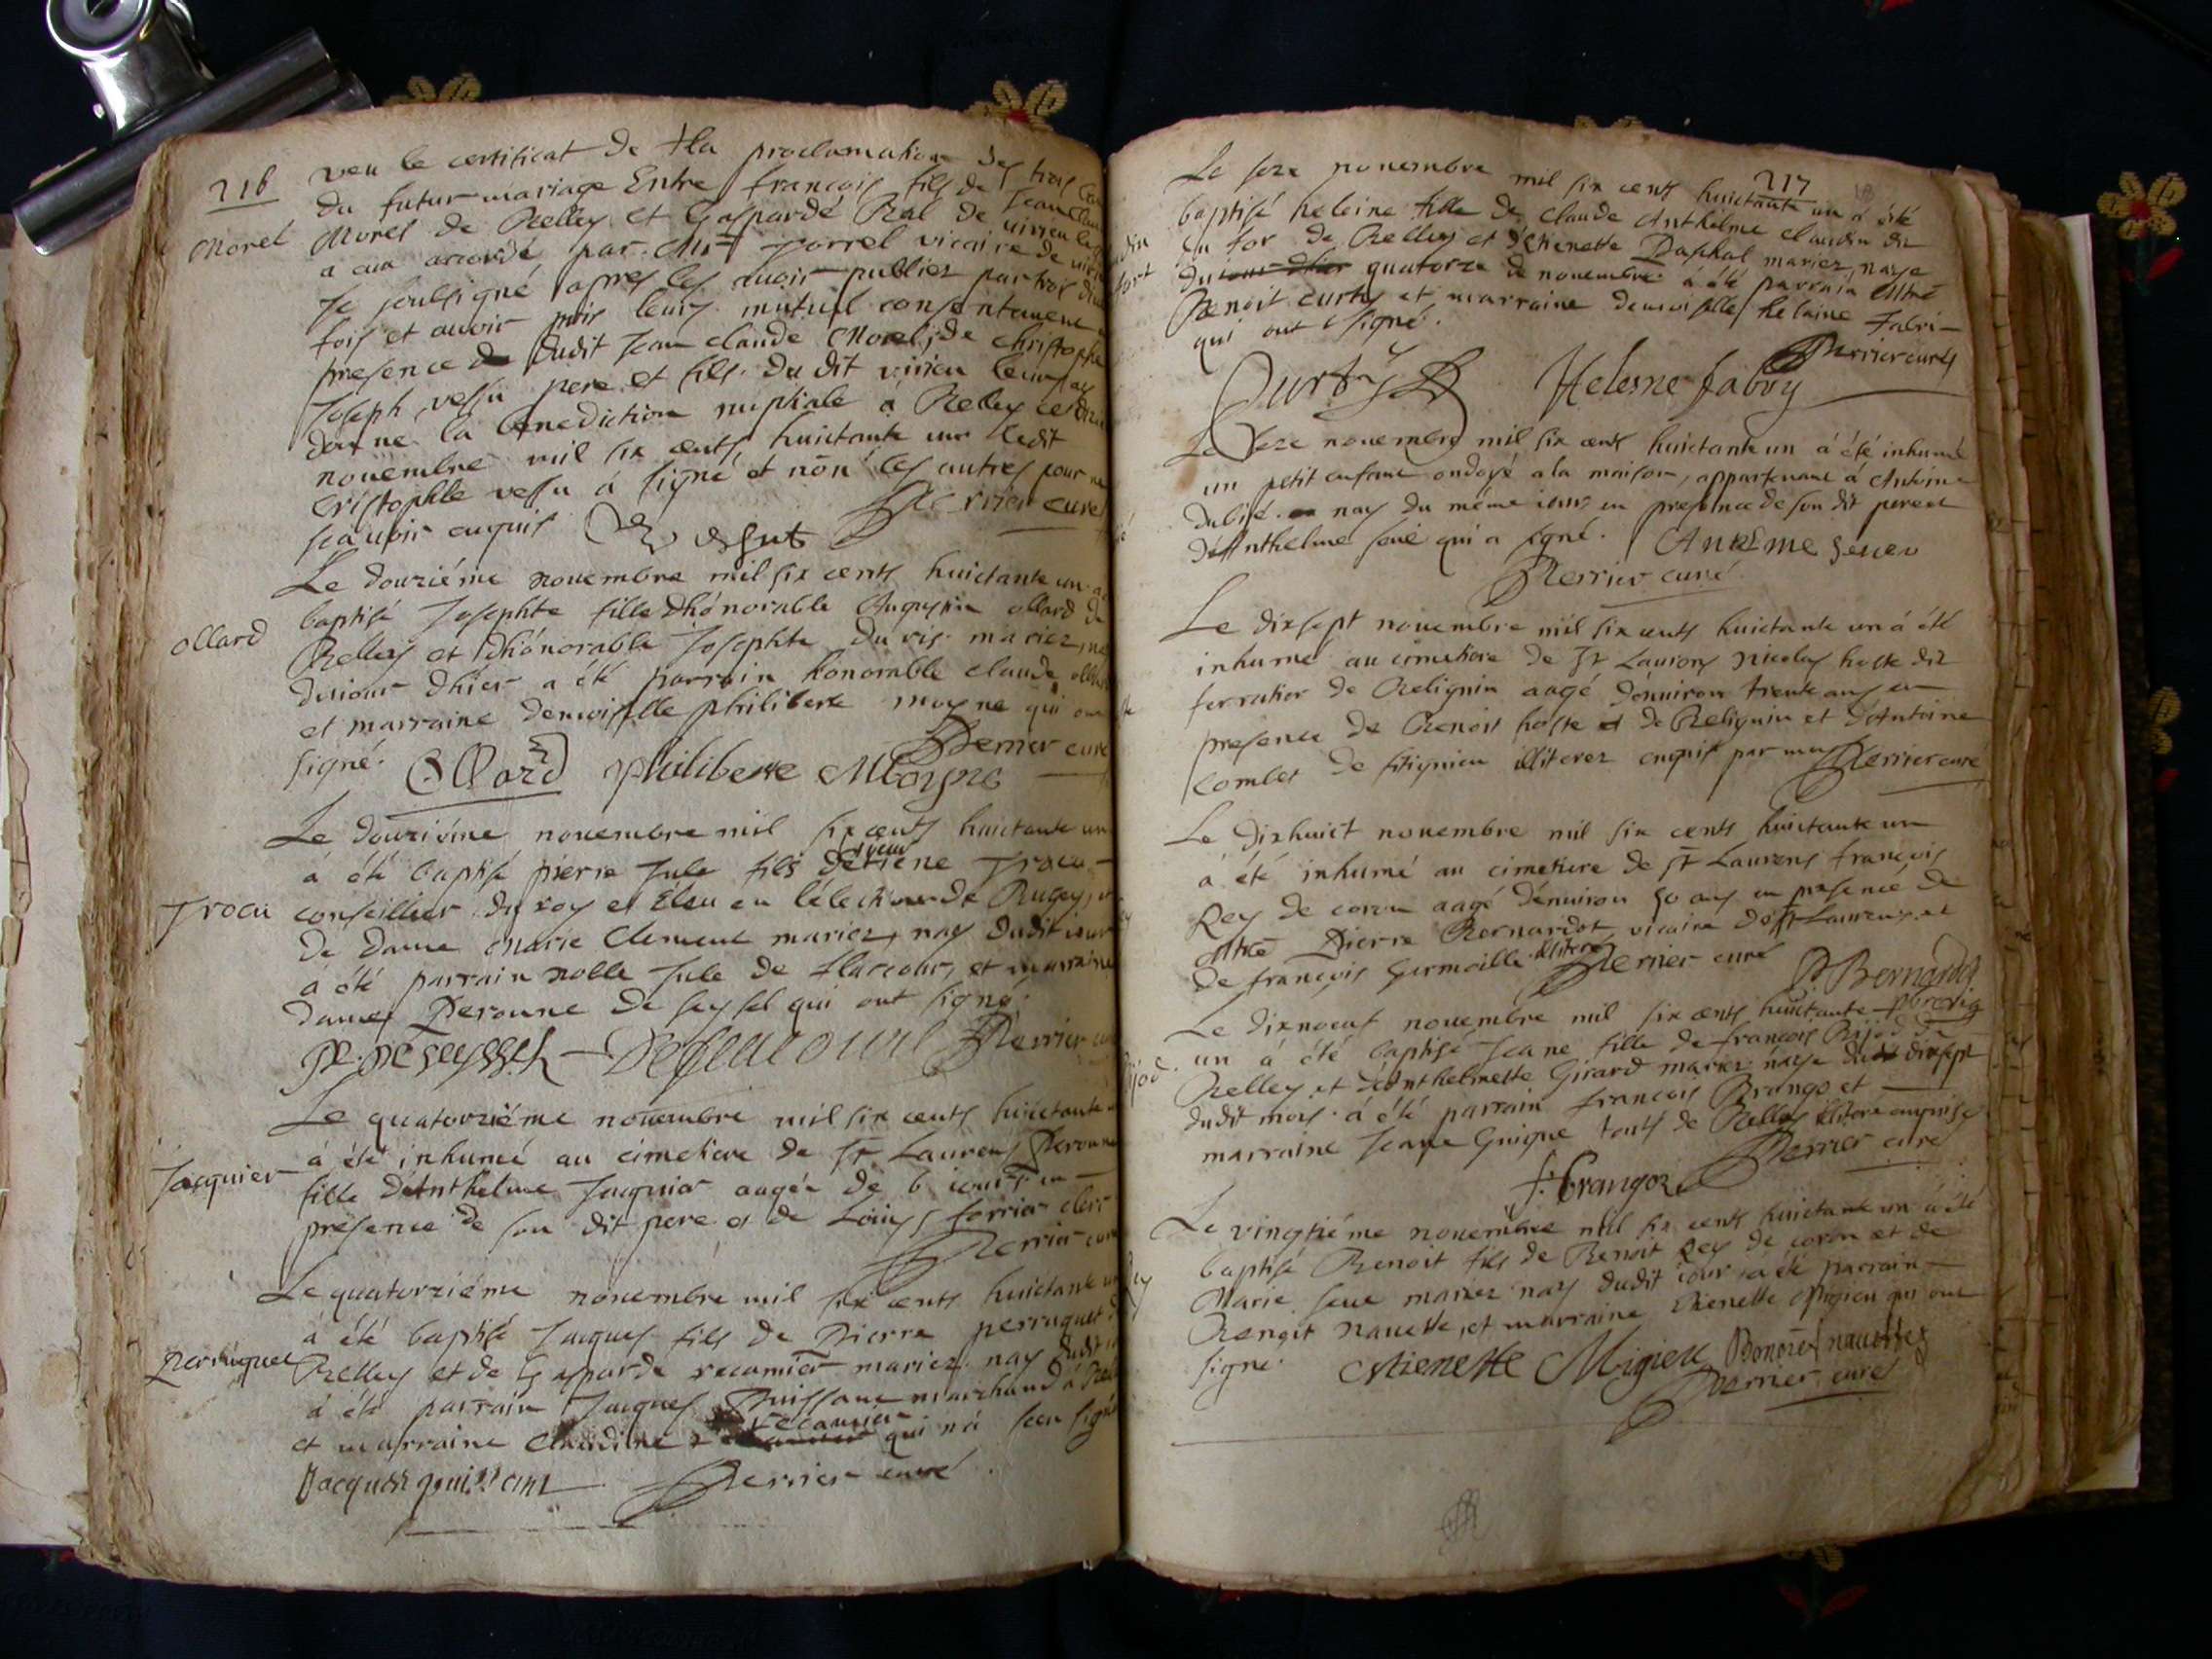 216
veu le certificat de la proclamation des trois
du futur mariage Entre françois fils de Jean Clau
Morel
Morel de Belley et Gasparde Ral de virieu le
a eux accordé par Mre Jorrel vicaire de
Je soubsigné apres les avoir publiez par trois
fois et avoir pris leurs mutuel consentement
presence dudit Jean claude Morel, de christophe
Joseph vessu pere et fils du dit virieu leur ay
donné la benediction nuptiale á Belley ce
novembre mil six cents huictante un ledit
cristophle vessu á signé et non les autres pour ne
scavoir enquis Perrier curé
Le douziéme novembre mil six cents huictante un a
ollard
baptisé Josephte fille dhónorable Augustin ollard de
Belley et dhónorable Josephte du vis mariez, nee
du jour dhier a été parrain honorable claude
et marraine demoiselle philiberte moyne qui ont
signé. Perrier curé
Ollard philiberte Moyne
Le douziéme novembre mil six cents huictante un
sieur
á été baptisé pierre Jule fils détiene Trocu
Trocu
conseillier du roy et Éleu en lélection de Bugey, et
de dame Marie Clement mariez, nay dudit jour
á été parrain noble Jule de et marraine
dame Peronne de seyssel qui ont signé.
Perrier
Le quatorziéme novembre mil six cents huictante
á été inhumeé au cimetiere de St Laurens Peronne
Jacquier
fille dAnthelme Jacquier aageé de 6 jours en
presence de son dit pere et de Loüys ferrier clerc
Perrier curé
Le quatorziéme novembre mil six cents huictante un
á été baptisé Jacques fils de Pierre perruquet
Perruquet
Belley et de Gasparde recamier mariez nay dudit
á été parrain Jacques Puissant marchand á
recamier
et marraine Claudine qui n'á sceu signé
Jacques puissant Perrier curé
217
Le seze novembre mil six cents huictante un á été
baptisé heleine fille de claude Anthelme claudin du
du for de Belley et détienette Paschal mariez, naye
du quatorze de novembre á été parrain Mre
Benoit curtys et marraine demoiselle helaine fabri
qui ont signé. Perrier curé
Curtys Helesne fabry
Le seze novembre mil six cents huictante un á été inhumé
un petit enfant ondoyé a la maison, appartenant á Antoine
dubié nay du même jour en presence de son dit pere et
dAnthelme seué qui a signé. Antelme
Perrier curé
Le dixsept novembre mil six cents huictante un á été
inhumé au cimetiere de St Laurens Nicolas hoste dit
ferratier de Belignin aagé dénuiron trente ans en
presence de Benoit hoste de Belignin et dAntoine
Combet de sitignieu illiterez enquis par moy Perrier curé
Le dixhuict novembre mil six cents huictante un
á été inhumé au cimetiere de St Laurens françois
Rey de coron aagé dénuiron 50 ans en presencé de
Mre Pierre Bernardot, vicaire de St Laurens et
de françois Germoille illiteré Perrier curé
P Bernardot
Le dixneuf novembre mil six cents huictante
un á été baptisé Jeane fille de francois Bijod du
Belley et dAnthelmette Girard mariez náye dixsept
dudit mois á été parrain françois Brango et
marraine Jeane Guigue touts de Belley illiteré enquise
f. brangoz Perrier curé
Le vingtiéme novembre mil six cents huictante un á été
Rey
baptisé Benoit fils de Benoit Rey de coron et de
Marie seue mariez nay dudit jour á été parrain
Benoit navette, et marraine Etienette Migieu qui ont
signé. Etienette Migieu Benoit navettez
Perrier curé